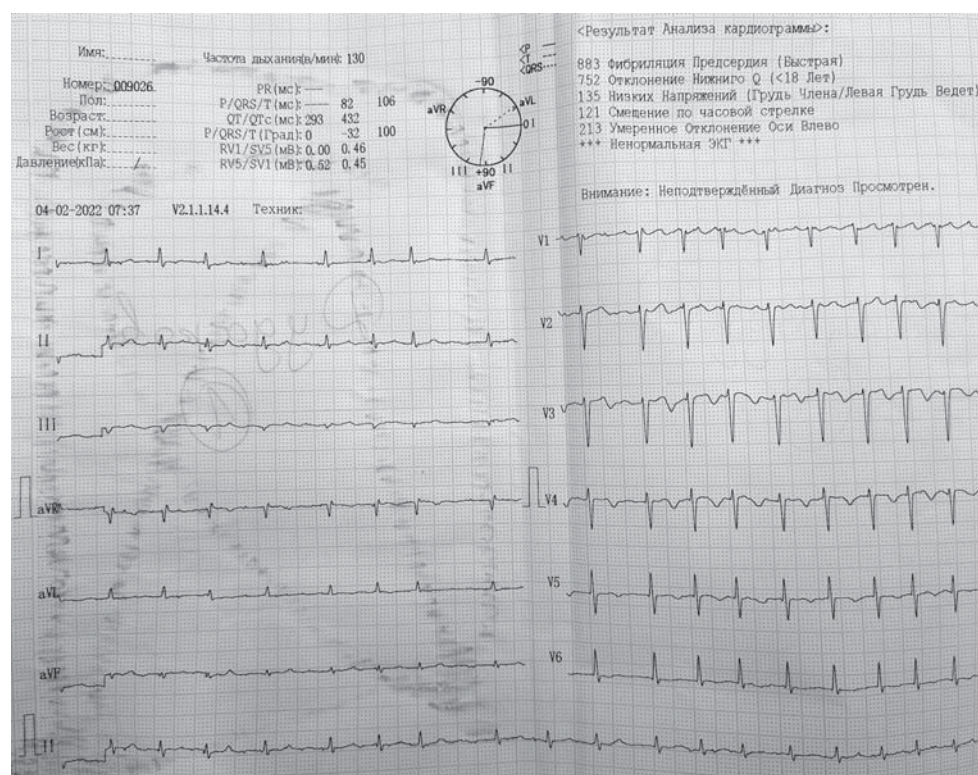 Имя:
Частота дыхания(в/мин): 130
Номер: 009026
Пол:
Возраст:
Рост(см):
Вес(кг):
Давление(кПа): /
PR(мс): ---
P/QRS/T(мс): --- 82 106
QT/QTc(мс): 293 432
P/QRS/T(Град): 0 -32 100
RV1/SV5(мВ): 0.00 0.46
RV5/SV1(мВ): 0.52 0.45
<P ---
<T ---
<QRS---
-90
aVR
aVL
0 I
III +90 II
aVF
<Результат Анализа кардиограммы>:
883 Фибриляция Предсердия (Быстрая)
752 Отклонение Нижниго Q (<18 Лет)
135 Низких Напряжений (Грудь Члена/Левая Грудь Ведет)
121 Смещение по часовой стрелке
213 Умеренное Отклонение Оси Влево
*** Ненормальная ЭКГ ***
Внимание: Неподтверждённый Диагноз Просмотрен.
04-02-2022 07:37 V2.1.1.14.4 Техник:
I
II
III
aVR
aVL
aVF
II
V1
V2
V3
V4
V5
V6